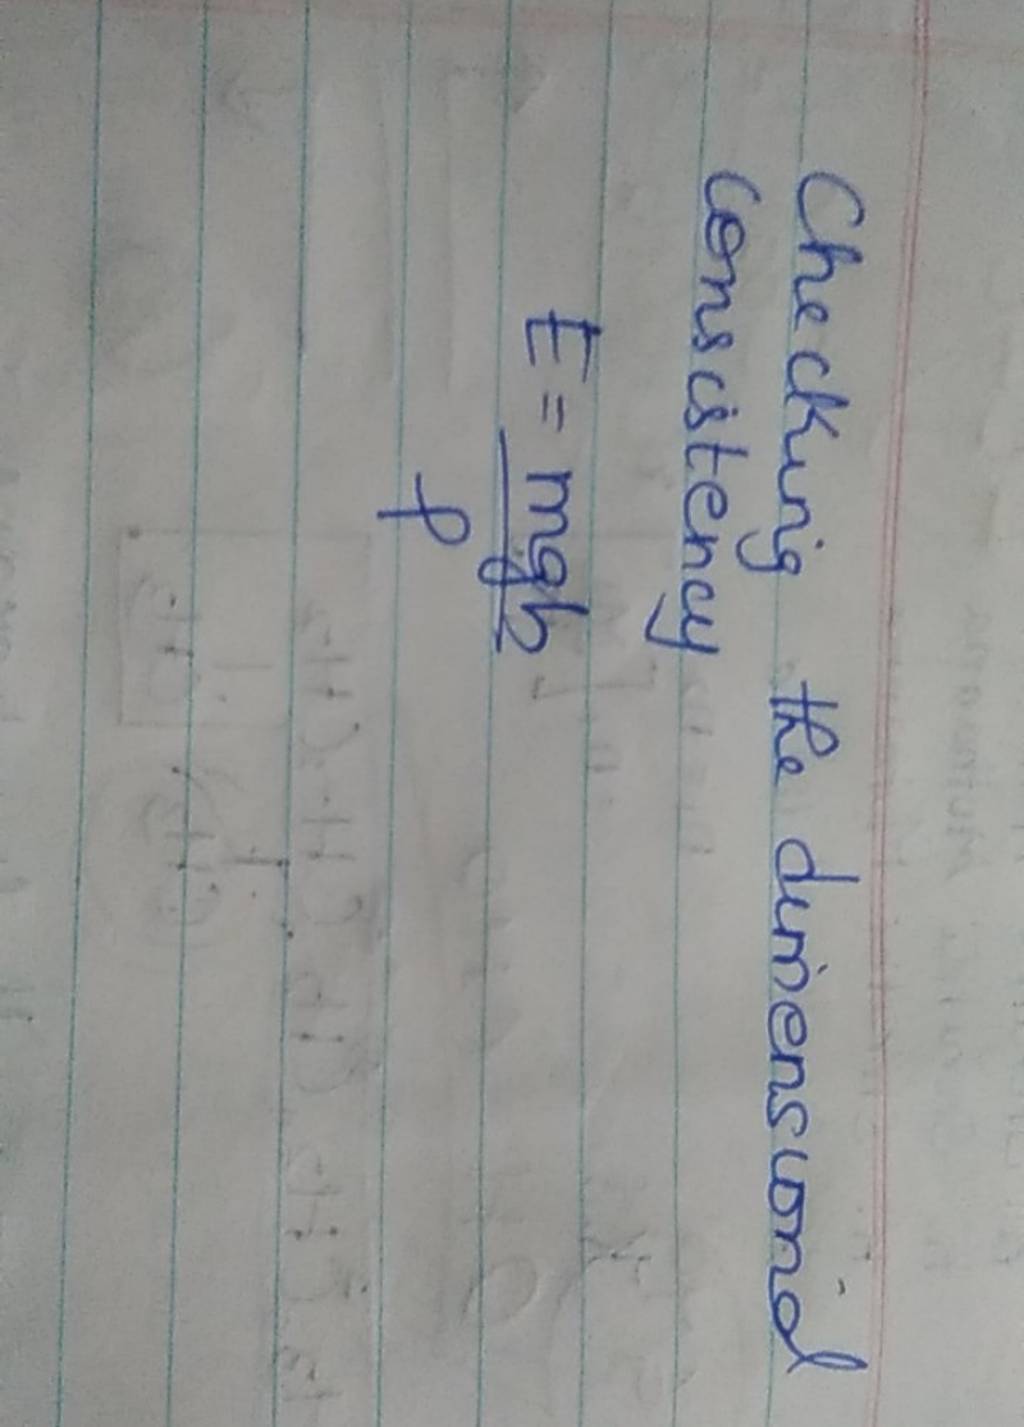 Checking the dimensional
consistency
E = mgh
p